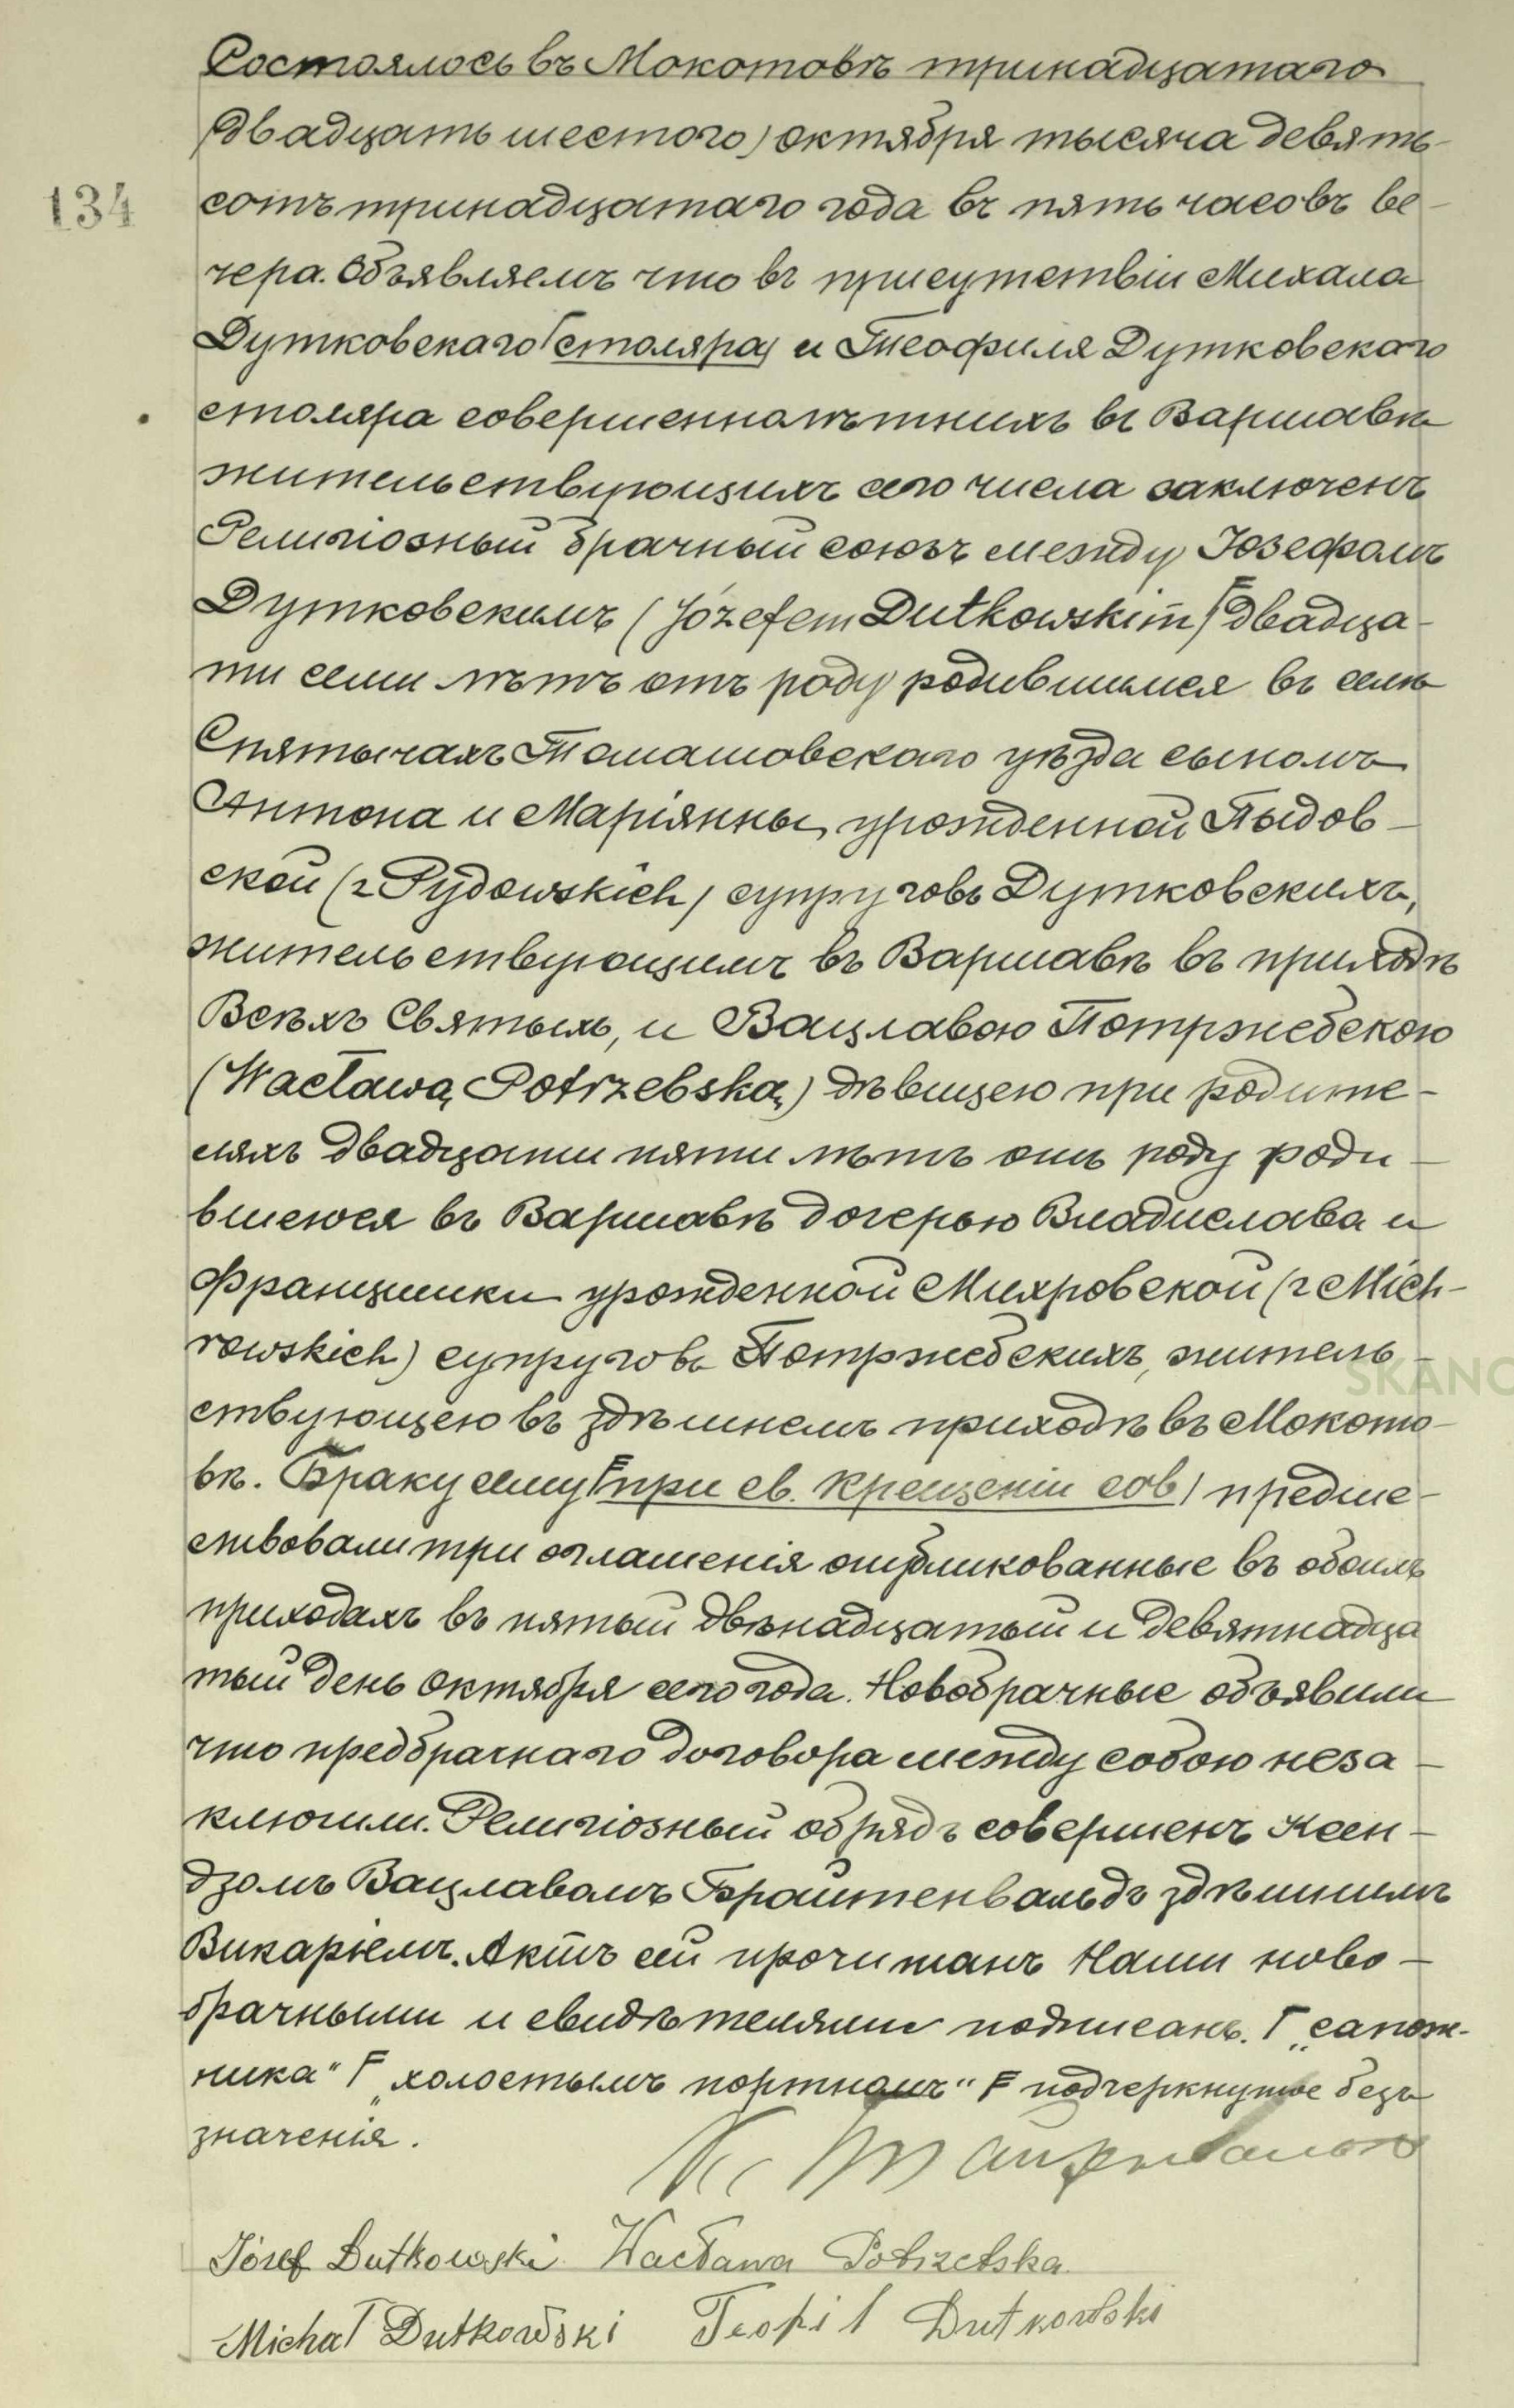 Состоялось въ Мокотовѣ тринадцатаго
(двадцать шестого) октября тысяча девять-
134
сотъ тринадцатаго года въ пять часовъ ве-
чера. Объявляемъ что въ присутствіи Михала
Дутковскаго Г столяра) и Теофиля Дутковскаго
столяра совершеннолѣтнихъ въ Варшавѣ
жительствующихъ сего числа заключенъ
Религіозный брачный союзъ между Юзефомъ
Дутковскимъ (Józefem Dutkowskim) F двадца-
ти семи лѣтъ отъ роду родившимся въ селѣ
Снятычахъ Томашовскаго уѣзда сыномъ
Антона и Маріянны, урожденной Пыдов-
ской (z Pydowskich) супруговъ Дутковскихъ,
жительствующимъ въ Варшавѣ въ приходѣ
Всѣхъ Святыхъ, и Вацлавою Потржебскою
(Wacławą Potrzebską) дѣвицею при родите-
ляхъ двадцати пяти лѣтъ отъ роду роди-
вшеюся въ Варшавѣ дочерью Владислава и
Францишки урожденной Михровской (z Mich-
rowskich) супруговъ Потржебскихъ, житель-
ствующею въ здѣшнемъ приходѣ въ Мокото-
вѣ. Браку сему F при св. крещеніи сов) предше-
ствовали три оглашенія опубликованные въ обоихъ
приходахъ въ пятый двѣнадцатый и девятнадца
тый день октября сего года. Новобрачные объявили
что предбрачнаго договора между собою неза-
ключили. Религіозный обрядъ совершенъ Ксен-
дзомъ Вацлавомъ Брайтенвальдъ здѣшнимъ
Викаріемъ. Актъ сей прочитанъ Нами ново-
брачными и свидѣтелями подписанъ. Г „сапож-
ника" F „холостымъ портнымъ" F подчеркнутое безъ
значенія.
Józef Dutkowski Wacława Potrzebska
Michał Dutkowski Teofil Dutkowski